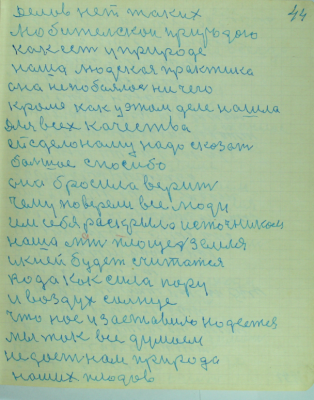 44
делов нет таких
любительское природою
как ест у природе
наша людская практика
она непобоялас ничего
кроме как у этом деле нашла
для всех качества
ей сделоному надо сказат
большое спосибо
она бросила верит
чему поверели все люди
им себя раскрыла источником
наша мт площед земля
и кней будет считатся
вода как сила пару
и воздух солнце
что нос изаставило надеетея
мы так все думаем
недает нам природа
наших плодов